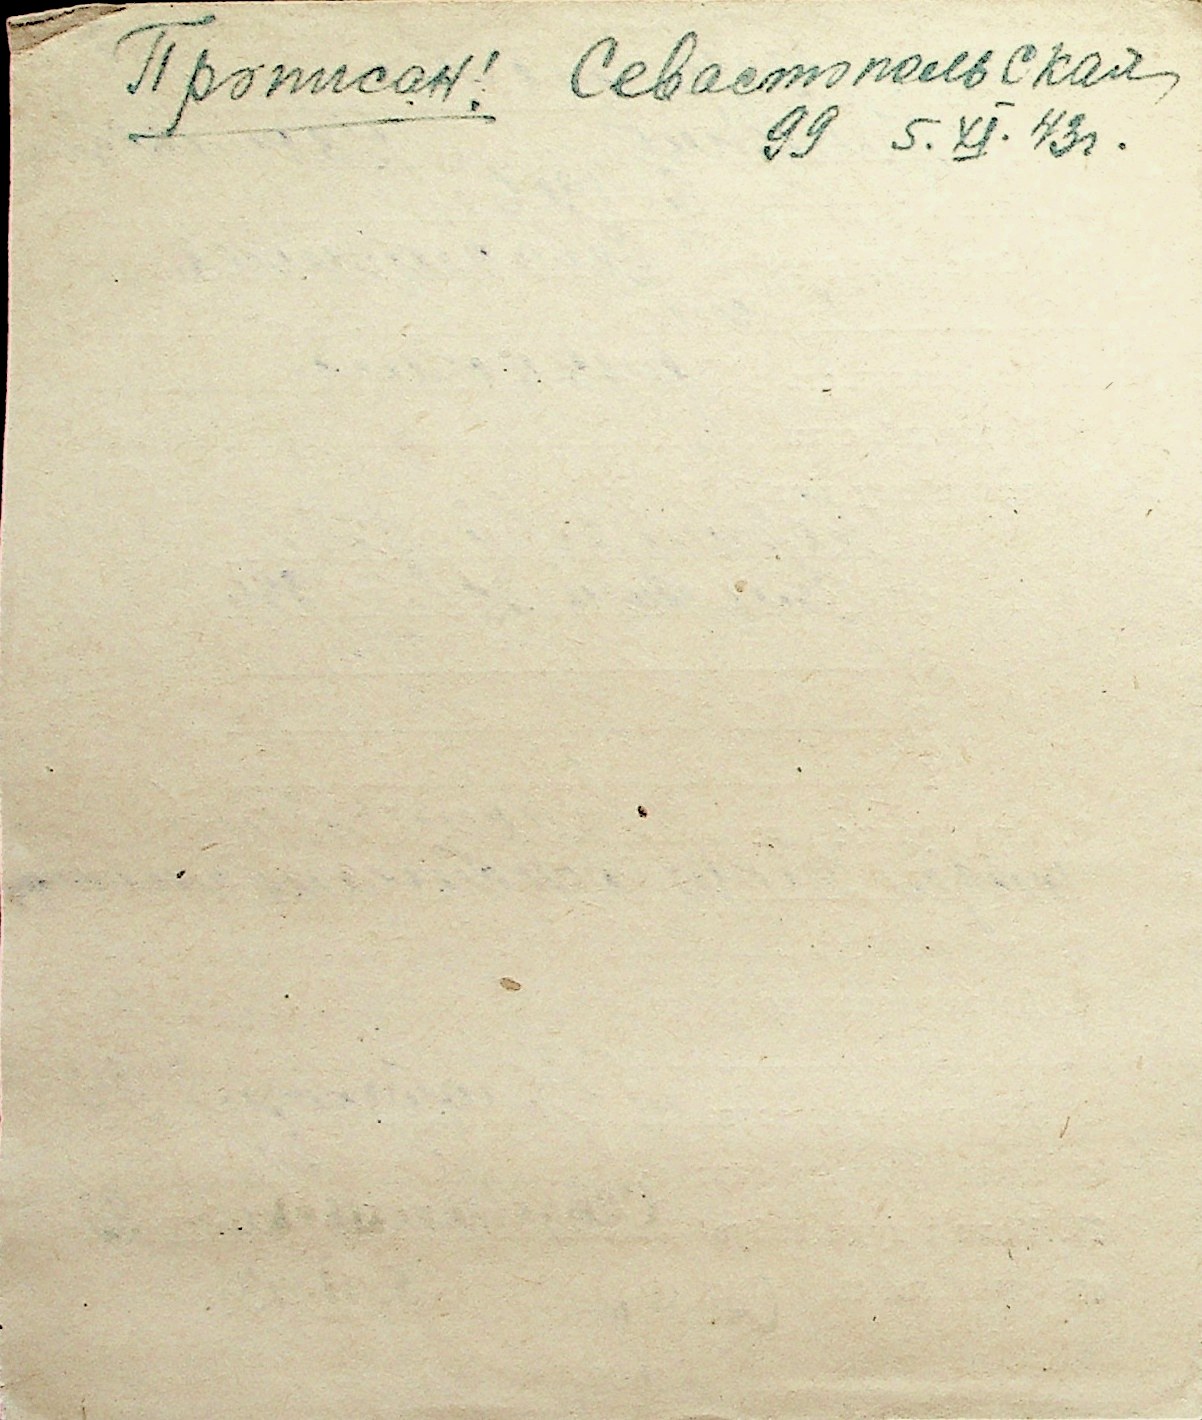 Прописан! Севастопольская
99 5.XI.43г.